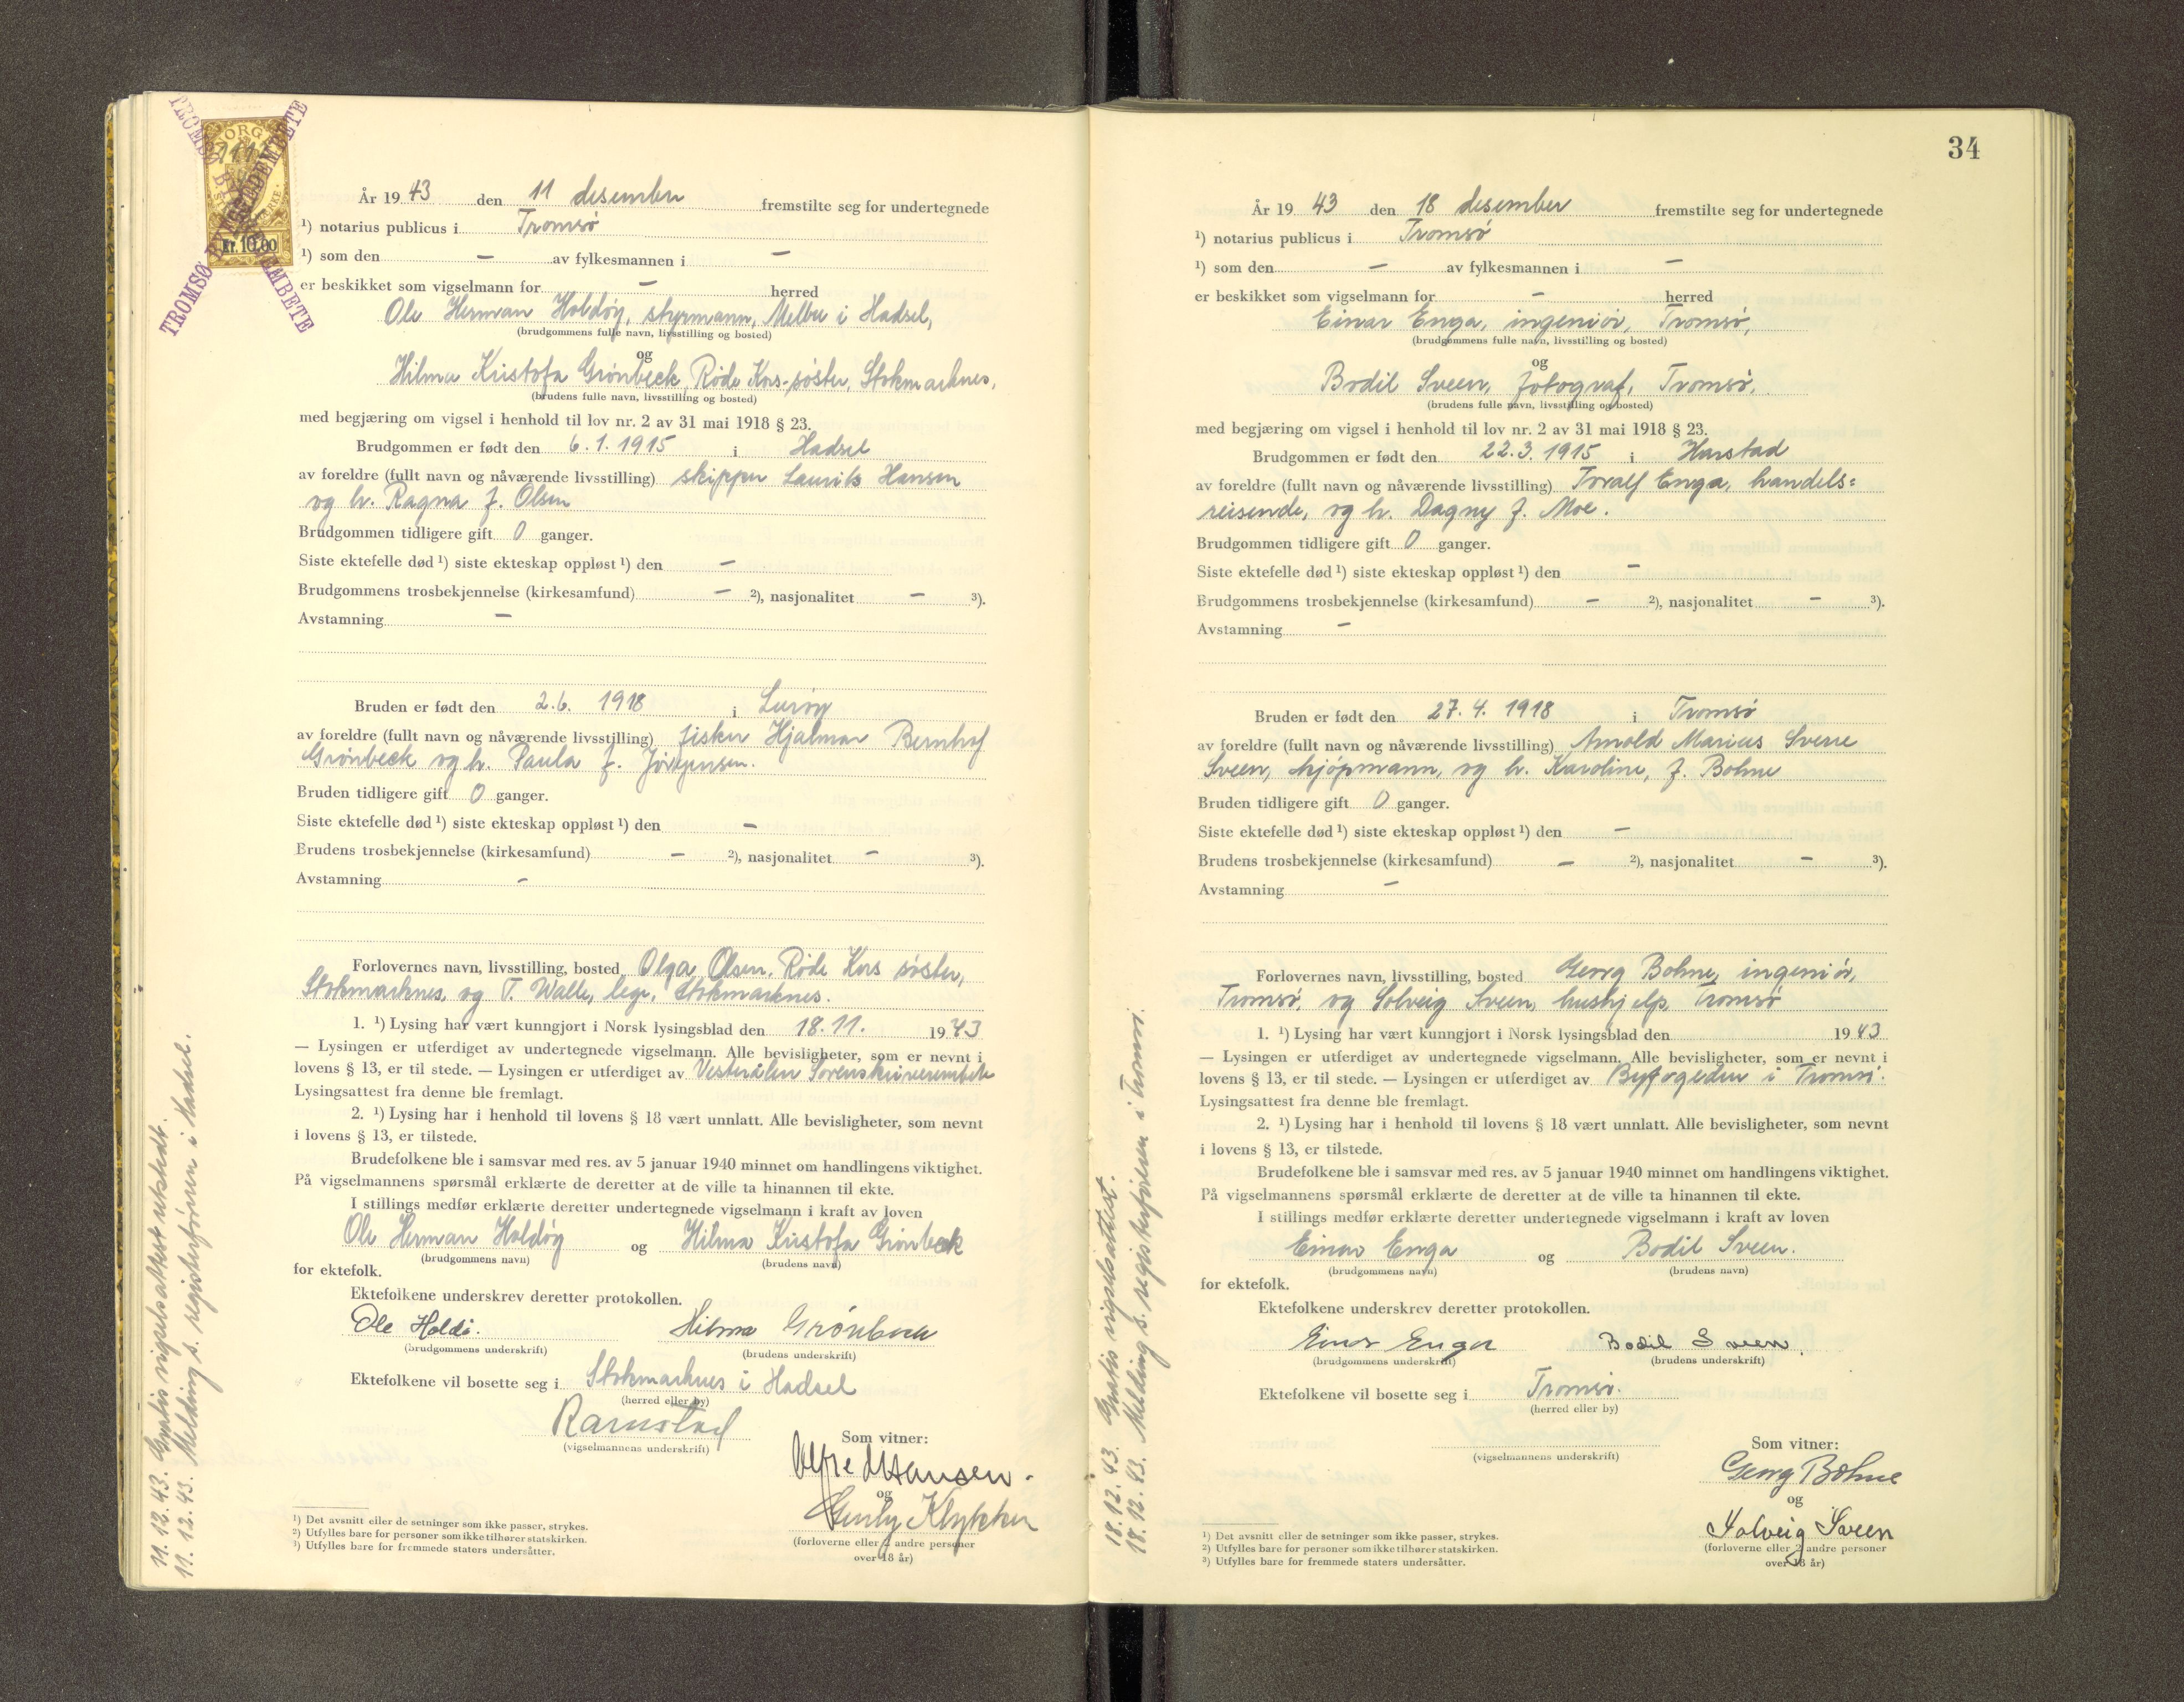 TROMSØ BYFOGEDEMBETE
TROMSØ BYFOGEDEMBETE
NORGE
Kr. 10.00
År 19 43 den 11 desember fremstilte seg for undertegnede
¹) notarius publicus i Tromsø
¹) som den — av fylkesmannen i —
er beskikket som vigselmann for — herred
Ole Herman Holdøy, styrmann, Melbu i Hadsel,
(brudgommens fulle navn, livsstilling og bosted)
og
Hilma Kristofa Grønbeck, Røde Kors-søster, Stokmarknes,
(brudens fulle navn, livsstilling og bosted)
med begjæring om vigsel i henhold til lov nr. 2 av 31 mai 1918 § 23.
Brudgommen er født den 6.1.1915 i Hadsel
av foreldre (fullt navn og nåværende livsstilling) skipper Laurits Hansen
og h. Ragna f. Olsen
Brudgommen tidligere gift 0 ganger.
Siste ektefelle død ¹) siste ekteskap oppløst ¹) den —
Brudgommens trosbekjennelse (kirkesamfund) — ²), nasjonalitet — ³).
Avstamning —
Bruden er født den 2.6. 1918 i Lurøy
av foreldre (fullt navn og nåværende livsstilling) fisker Hjalmar Bernhof
Grønbeck og h. Paula f. Jørgensen.
Bruden tidligere gift 0 ganger.
Siste ektefelle død ¹) siste ekteskap oppløst ¹) den —
Brudens trosbekjennelse (kirkesamfund) — ²), nasjonalitet — ³).
Avstamning —
Forlovernes navn, livsstilling, bosted Olga Olsen. Røde Kors søster,
Stokmarknes, og T. Walle, lege, Stokmarknes.
1. ¹) Lysing har vært kunngjort i Norsk lysingsblad den 18.11. 19 43
— Lysingen er utferdiget av undertegnede vigselmann. Alle bevisligheter, som er nevnt i
lovens § 13, er til stede. — Lysingen er utferdiget av Vesterålen Sorenskriverembete
Lysingsattest fra denne ble fremlagt.
2. ¹) Lysing har i henhold til lovens § 18 vært unnlatt. Alle bevisligheter, som nevnt
i lovens § 13, er tilstede.
Brudefolkene ble i samsvar med res. av 5 januar 1940 minnet om handlingens viktighet.
På vigselmannens spørsmål erklærte de deretter at de ville ta hinannen til ekte.
I stillings medfør erklærte deretter undertegnede vigselmann i kraft av loven
Ole Herman Holdøy og Hilma Kristofa Grønbeck
(brudgommens navn) (brudens navn)
for ektefolk.
Ektefolkene underskrev deretter protokollen.
Ole Holdø. Hilma Grønbeck
(brudgommens underskrift) (brudens underskrift)
Ektefolkene vil bosette seg i Stokmarknes i Hadsel
(herred eller by)
Ramstad
(vigselmannens underskrift)
Som vitner:
Alfred Hansen.
og
Klykken
(forloverne eller 2 andre personer
over 18 år)
¹) Det avsnitt eller de setninger som ikke passer, strykes.
²) Utfylles bare for personer som ikke tilhører statskirken.
³) Utfylles bare for fremmede staters undersåtter.
11.12.43. Gratis vigselsattest utstedt.
11.12.43. Melding s. registerføreren i Hadsel.
34
År 19 43 den 18 desember fremstilte seg for undertegnede
¹) notarius publicus i Tromsø
¹) som den — av fylkesmannen i —
er beskikket som vigselmann for — herred
Einar Enga, ingeniør, Tromsø,
(brudgommens fulle navn, livsstilling og bosted)
og
Bodil Sveen, fotograf, Tromsø,
(brudens fulle navn, livsstilling og bosted)
med begjæring om vigsel i henhold til lov nr. 2 av 31 mai 1918 § 23.
Brudgommen er født den 22.3.1915 i Harstad
av foreldre (fullt navn og nåværende livsstilling) Toralf Enga, handels=
reisende, og h. Dagny f. Moe.
Brudgommen tidligere gift 0 ganger.
Siste ektefelle død ¹) siste ekteskap oppløst ¹) den —
Brudgommens trosbekjennelse (kirkesamfund) — ²), nasjonalitet — ³).
Avstamning —
Bruden er født den 27.4.1918 i Tromsø
av foreldre (fullt navn og nåværende livsstilling) Arnold Marius Sverre
Sveen, kjøpmann, og h. Karoline, f. Bohne
Bruden tidligere gift 0 ganger.
Siste ektefelle død ¹) siste ekteskap oppløst ¹) den —
Brudens trosbekjennelse (kirkesamfund) — ²), nasjonalitet — ³).
Avstamning —
Forlovernes navn, livsstilling, bosted Georg Bohne, ingeniør,
Tromsø, og Solveig Sveen, hushjelp, Tromsø
1. ¹) Lysing har vært kunngjort i Norsk lysingsblad den 19 43
— Lysingen er utferdiget av undertegnede vigselmann. Alle bevisligheter, som er nevnt i
lovens § 13, er til stede. — Lysingen er utferdiget av Byfogeden i Tromsø.
Lysingsattest fra denne ble fremlagt.
2. ¹) Lysing har i henhold til lovens § 18 vært unnlatt. Alle bevisligheter, som nevnt
i lovens § 13, er tilstede.
Brudefolkene ble i samsvar med res. av 5 januar 1940 minnet om handlingens viktighet.
På vigselmannens spørsmål erklærte de deretter at de ville ta hinannen til ekte.
I stillings medfør erklærte deretter undertegnede vigselmann i kraft av loven
Einar Enga og Bodil Sveen.
(brudgommens navn) (brudens navn)
for ektefolk.
Ektefolkene underskrev deretter protokollen.
Einar Enga Bodil Sveen.
(brudgommens underskrift) (brudens underskrift)
Ektefolkene vil bosette seg i Tromsø.
(herred eller by)
(vigselmannens underskrift)
Som vitner:
Georg Bohne
og
Solveig Sveen
(forloverne eller 2 andre personer
over 18 år)
¹) Det avsnitt eller de setninger som ikke passer, strykes.
²) Utfylles bare for personer som ikke tilhører statskirken.
³) Utfylles bare for fremmede staters undersåtter.
18.12.43. Gratis vigselsattest.
18.12.43. Melding s. registerføreren i Tromsø.